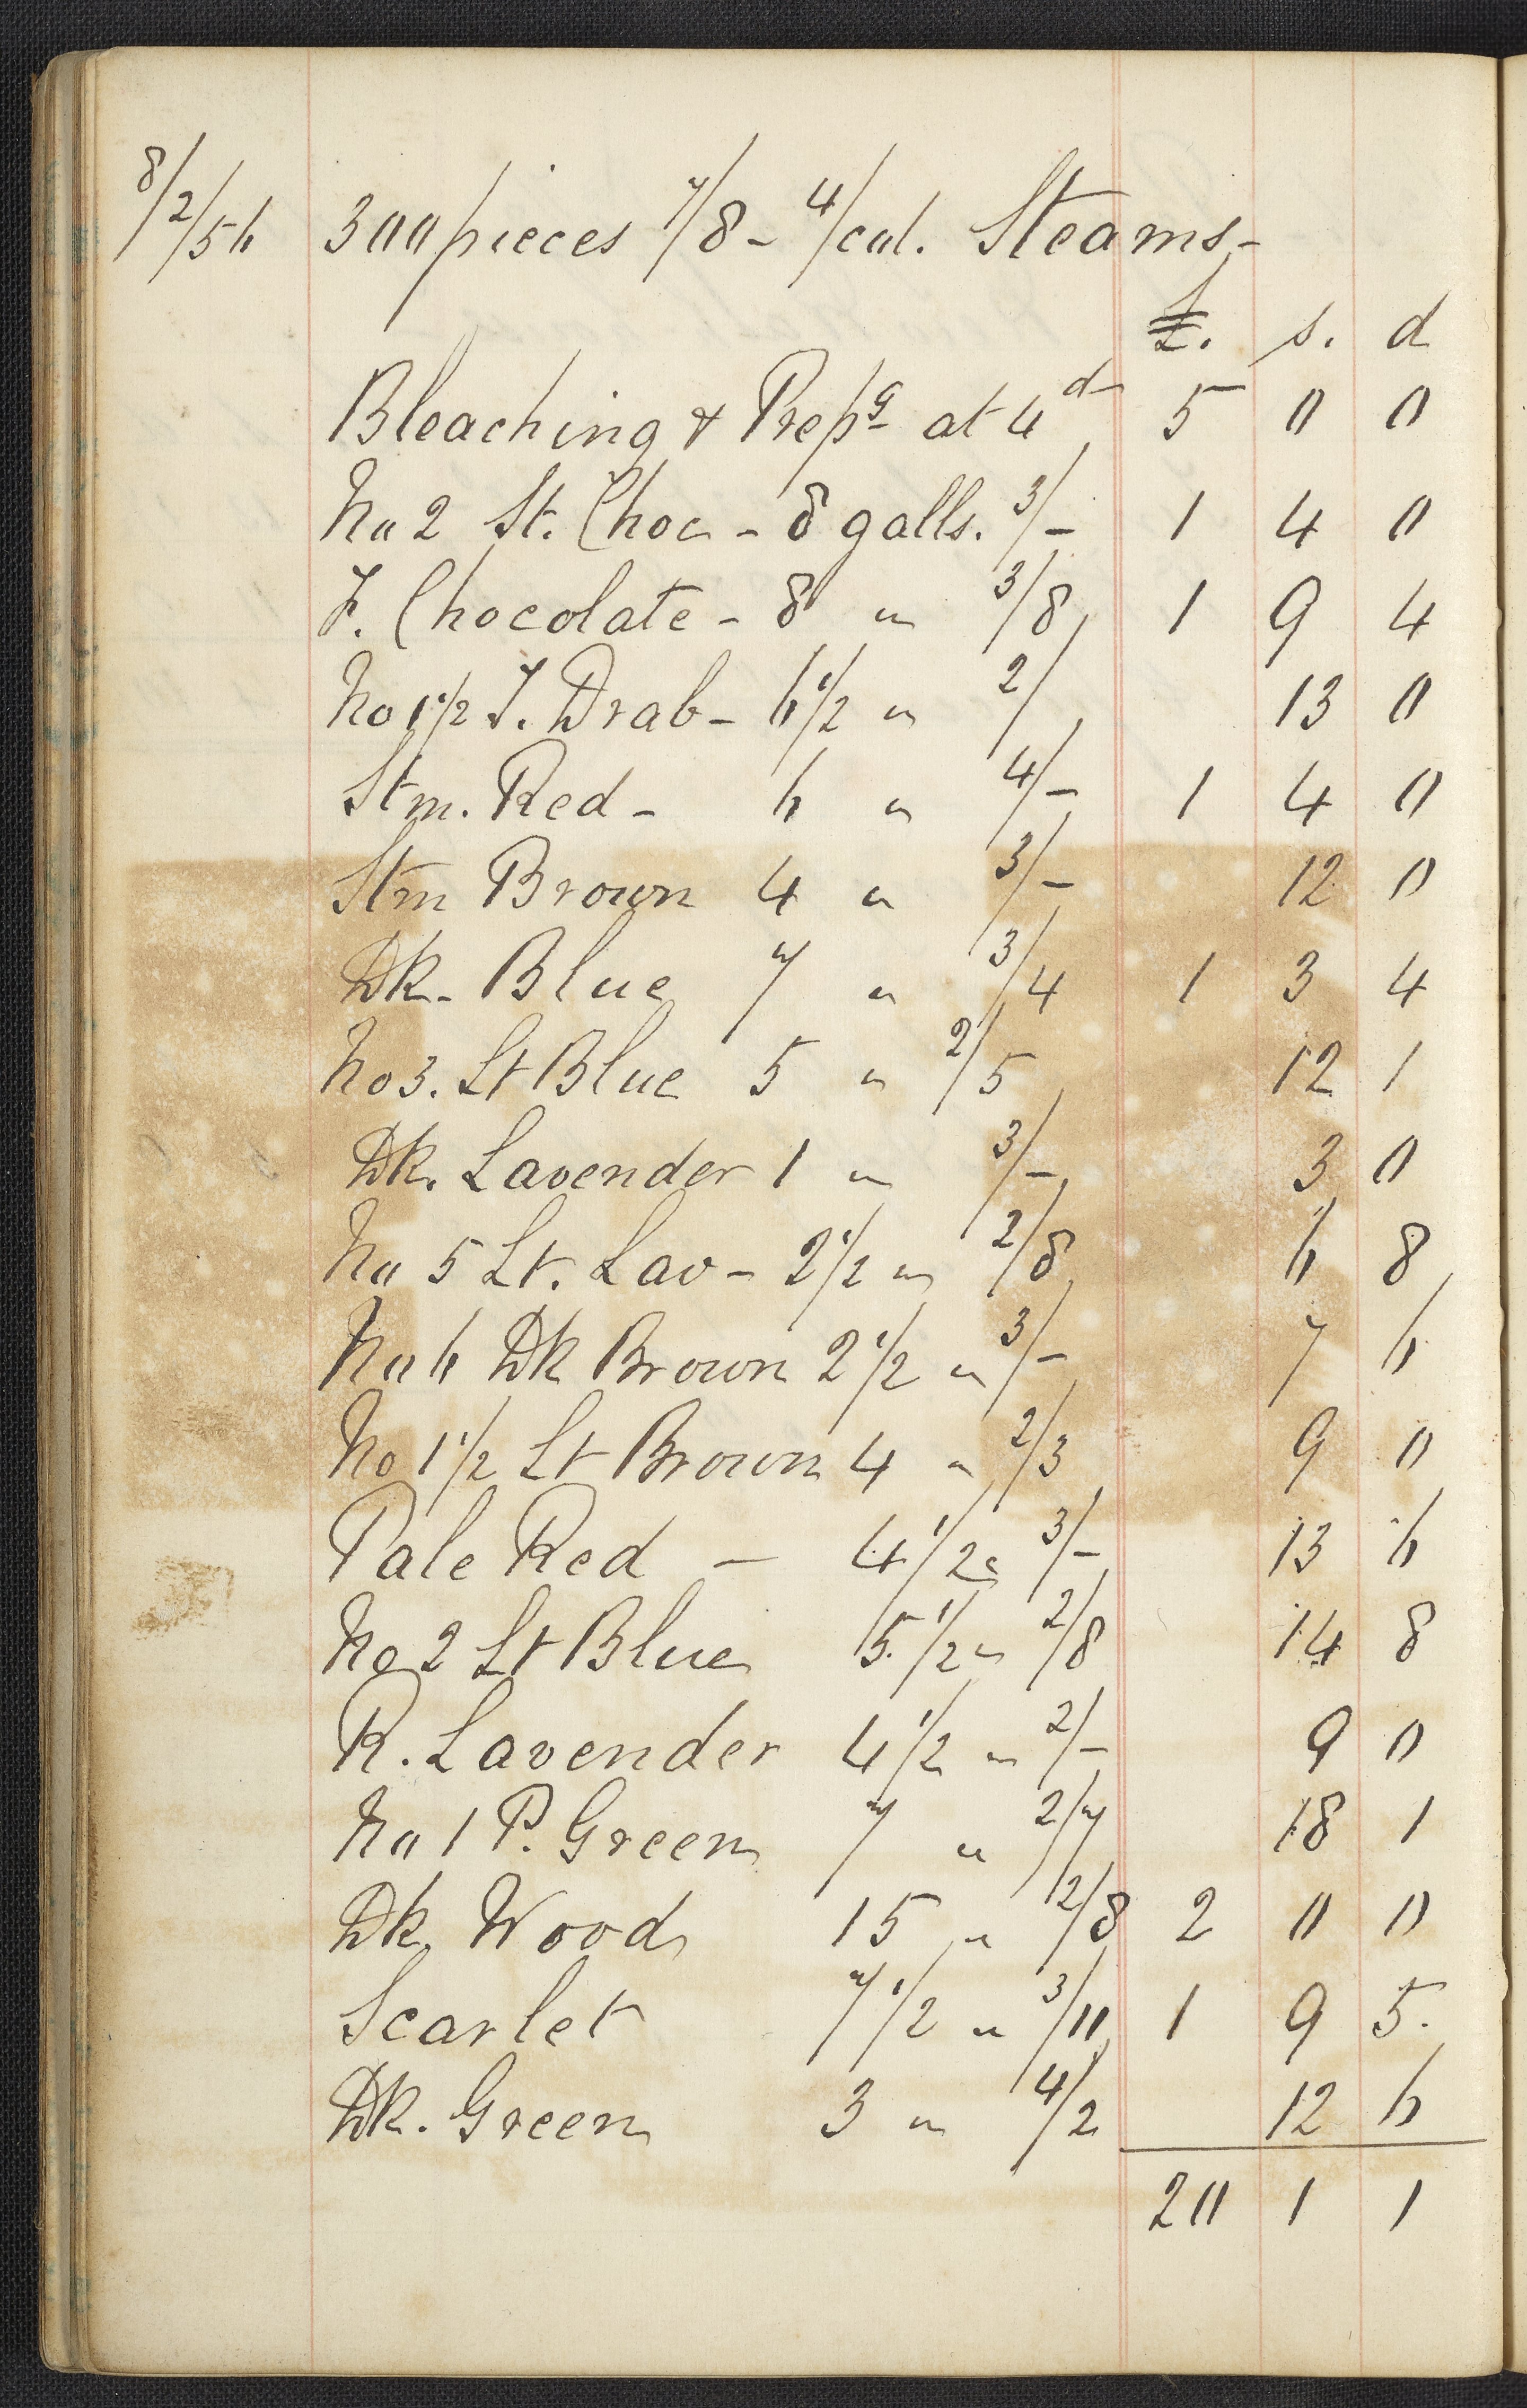 8/2/56 300 pieces 7/8 - 4/col. Steams -
£. s. d
Bleaching & Prepg at 4d 5 0 0
No 2 St. Choc - 8 galls. 3/- 1 4 0
F. Chocolate - 8 " 3/8 1 9 4
No 1 1/2 F. Drab - 6 1/2 " 2/ 13 0
Stm. Red - 6 " 4/- 1 4 0
Stm Brown 4 " 3/- 12 0
Dk. Blue 7 " 3/4 1 3 4
No 3. Lt Blue 5 " 2/5 12 1
Dk. Lavender 1 " 3/- 3 0
No 5 Lt. Lav - 2 1/2 " 2/8 6 8
No 6 Dk Brown 2 1/2 " 3/- 7 6
No 1 1/2 Lt Brown 4 " 2/3 9 0
Pale Red - 4 1/2 " 3/- 13 6
No 2 Lt Blue 5 1/2 " 2/8 14 8
R. Lavender 4 1/2 " 2/- 9 0
No 1 P. Green 7 " 2/7 18 1
Dk. Wood 15 " 2/8 2 0 0
Scarlet 7 1/2 " 3/11 1 9 5.
Dk. Green 3 " 4/2 12 6
20 1 1